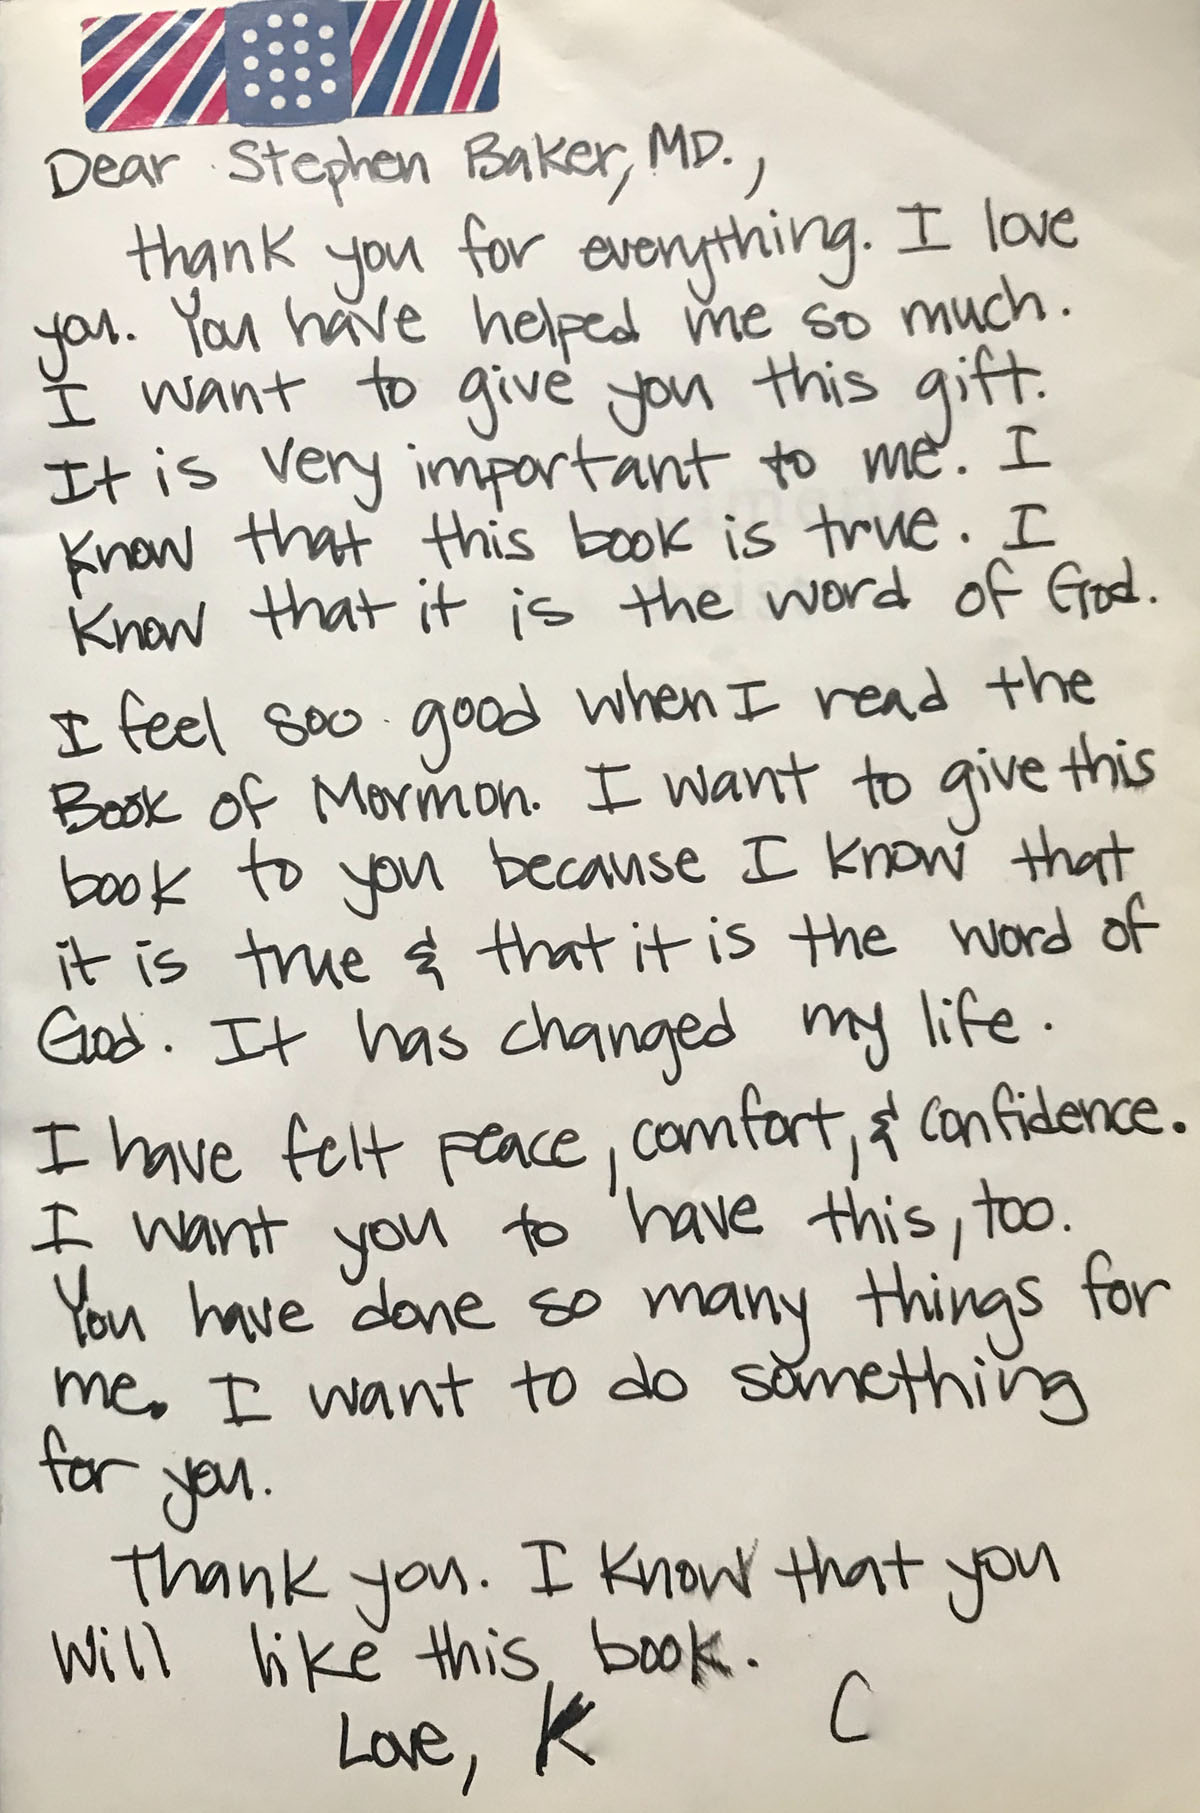 Dear Stephen Baker, MD.,
thank you for everything. I love
you. You have helped me so much.
I want to give you this gift.
It is very important to me. I
know that this book is true. I
know that it is the word of God.
I feel soo good when I read the
Book of Mormon. I want to give this
book to you because I know that
it is true & that it is the word of
God. It has changed my life.
I have felt peace, comfort, & confidence.
I want you to have this, too.
You have done so many things for
me. I want to do something
for you.
Thank you. I know that you
will like this book.
Love, K C